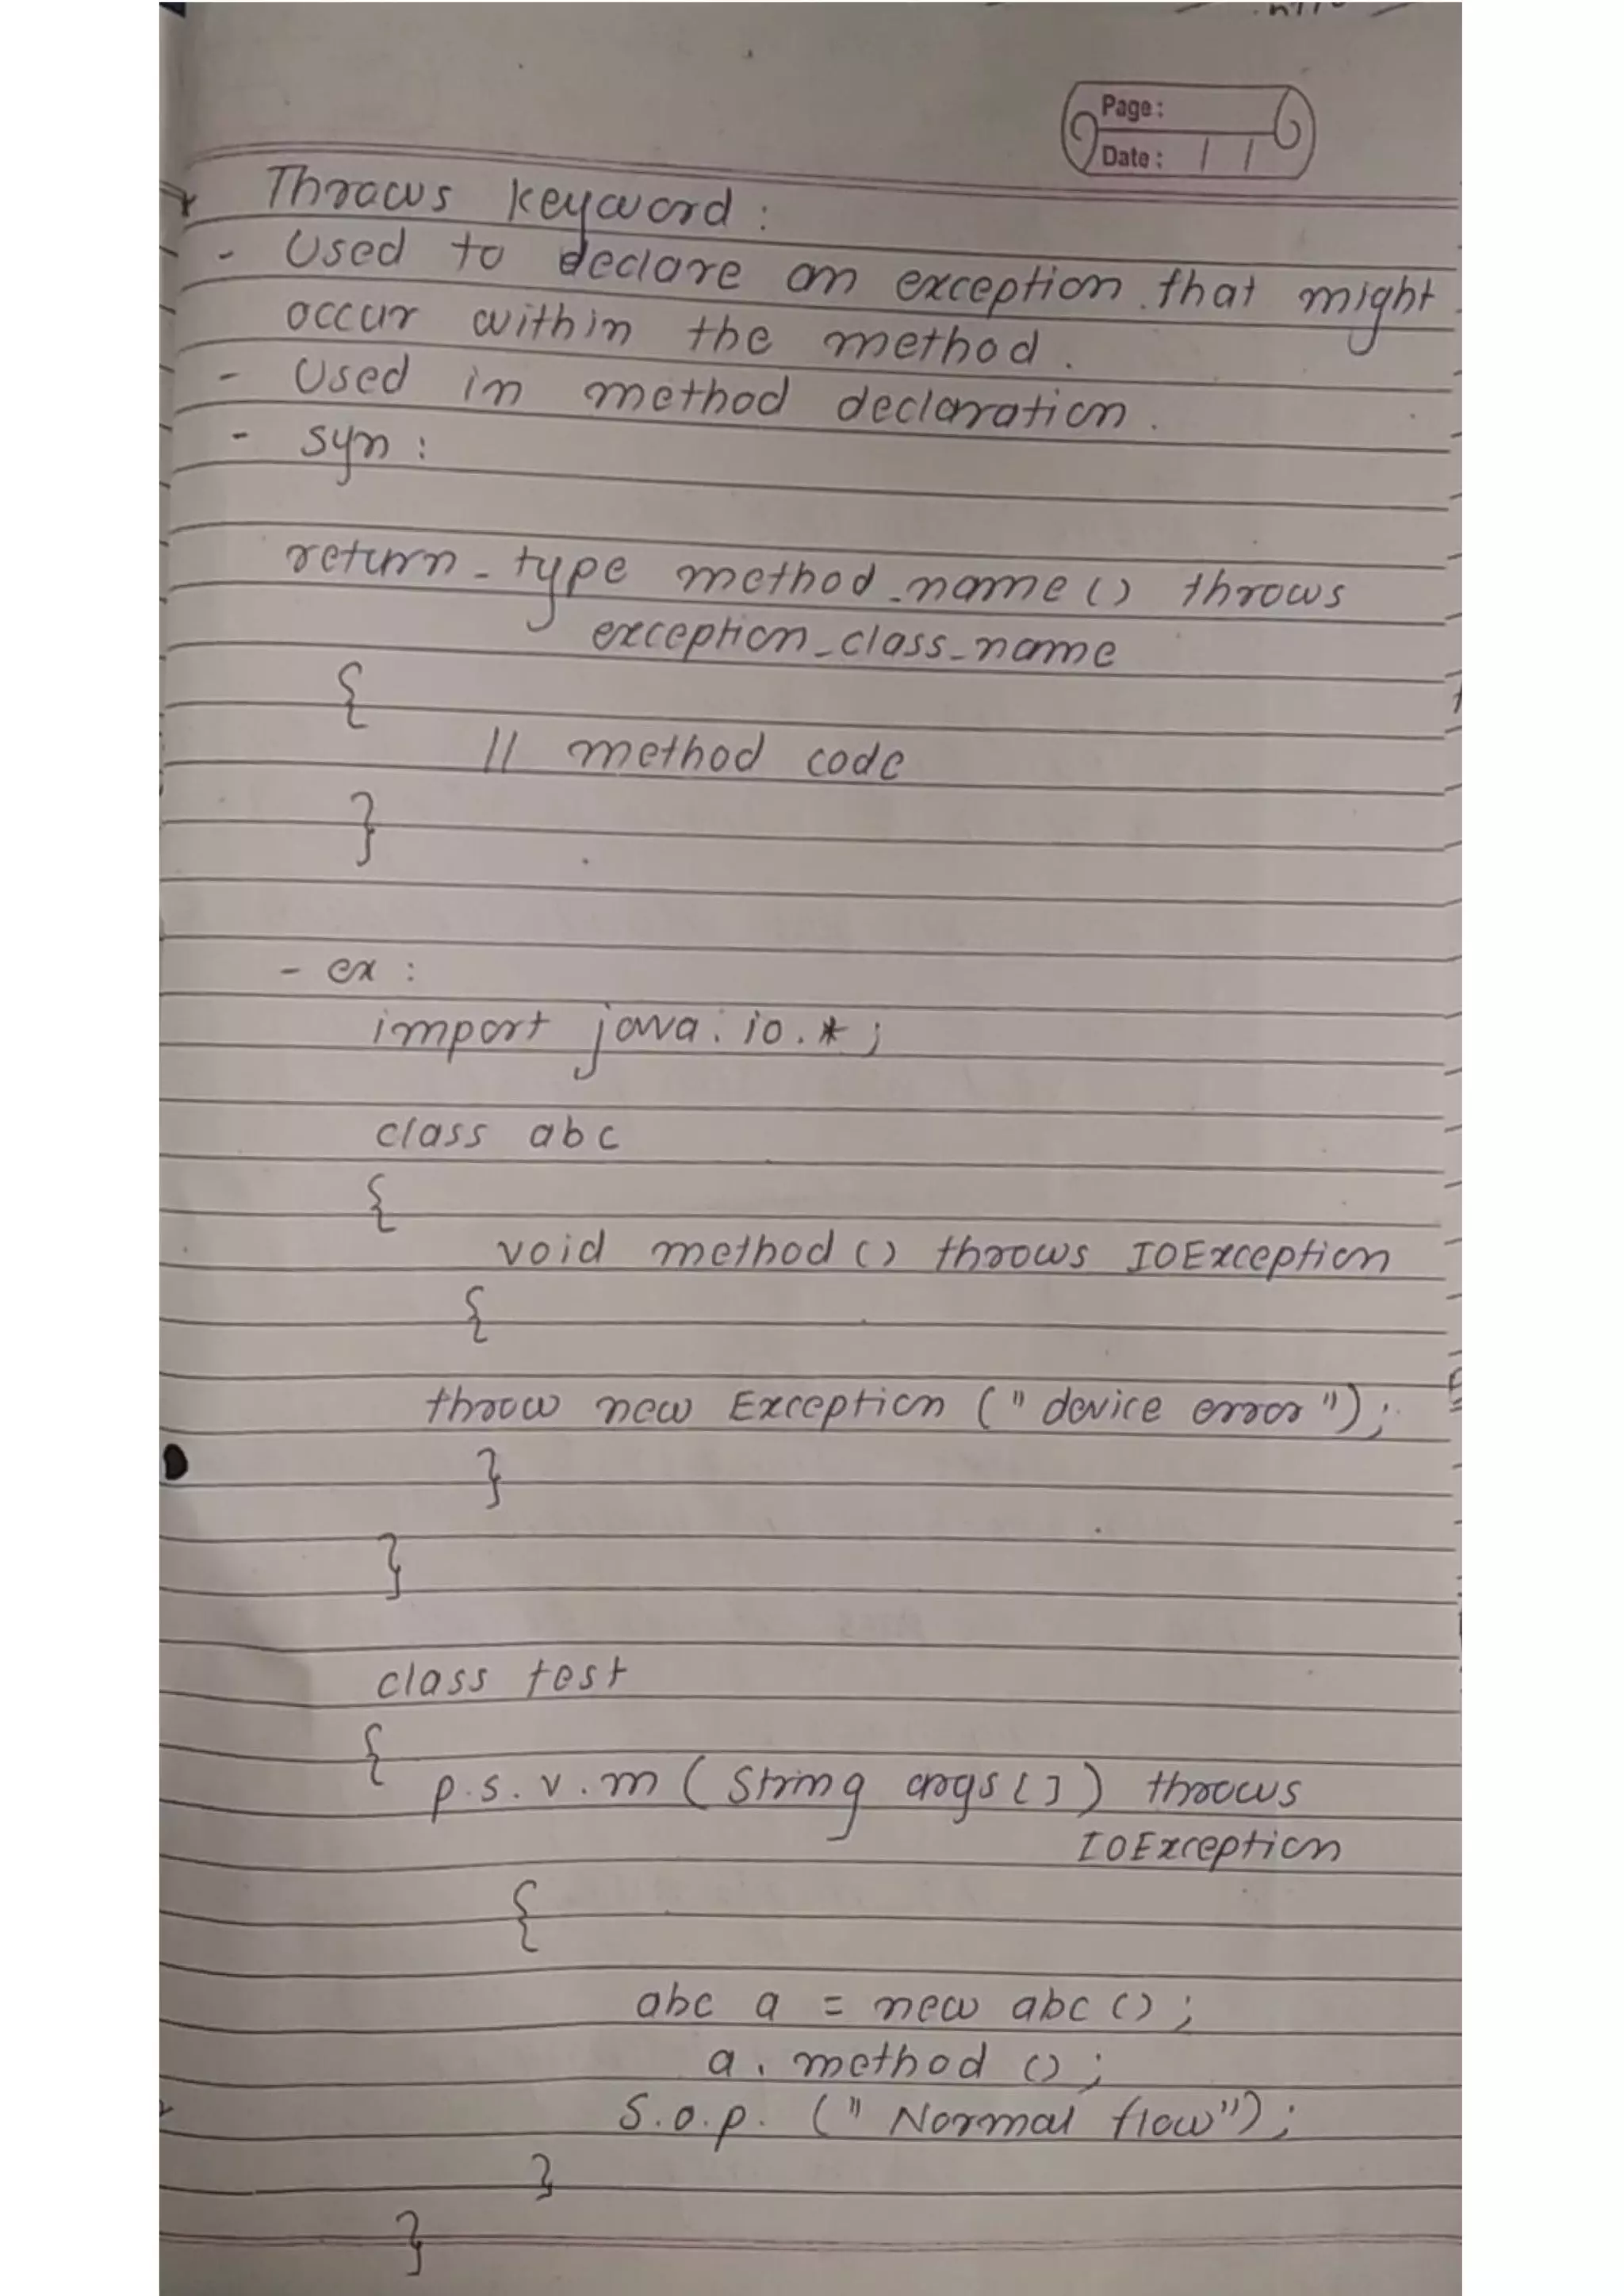 Page :
Date : / /
Throws keyword :
- Used to declare an exception that might
occur within the method .
- Used in method declaration .
- syn :
return_type method_name () throws
exception_class_name
{
// method code
}
- ex :
import java.io.* ;
class abc
{
void method () throws IOException
{
throw new Exception (" device error ") ;
}
}
class test
{
p.s.v.m ( String args [] ) throws
IOException
{
abc a = new abc () ;
a . method () ;
S.o.p. (" Normal flow") ;
}
}